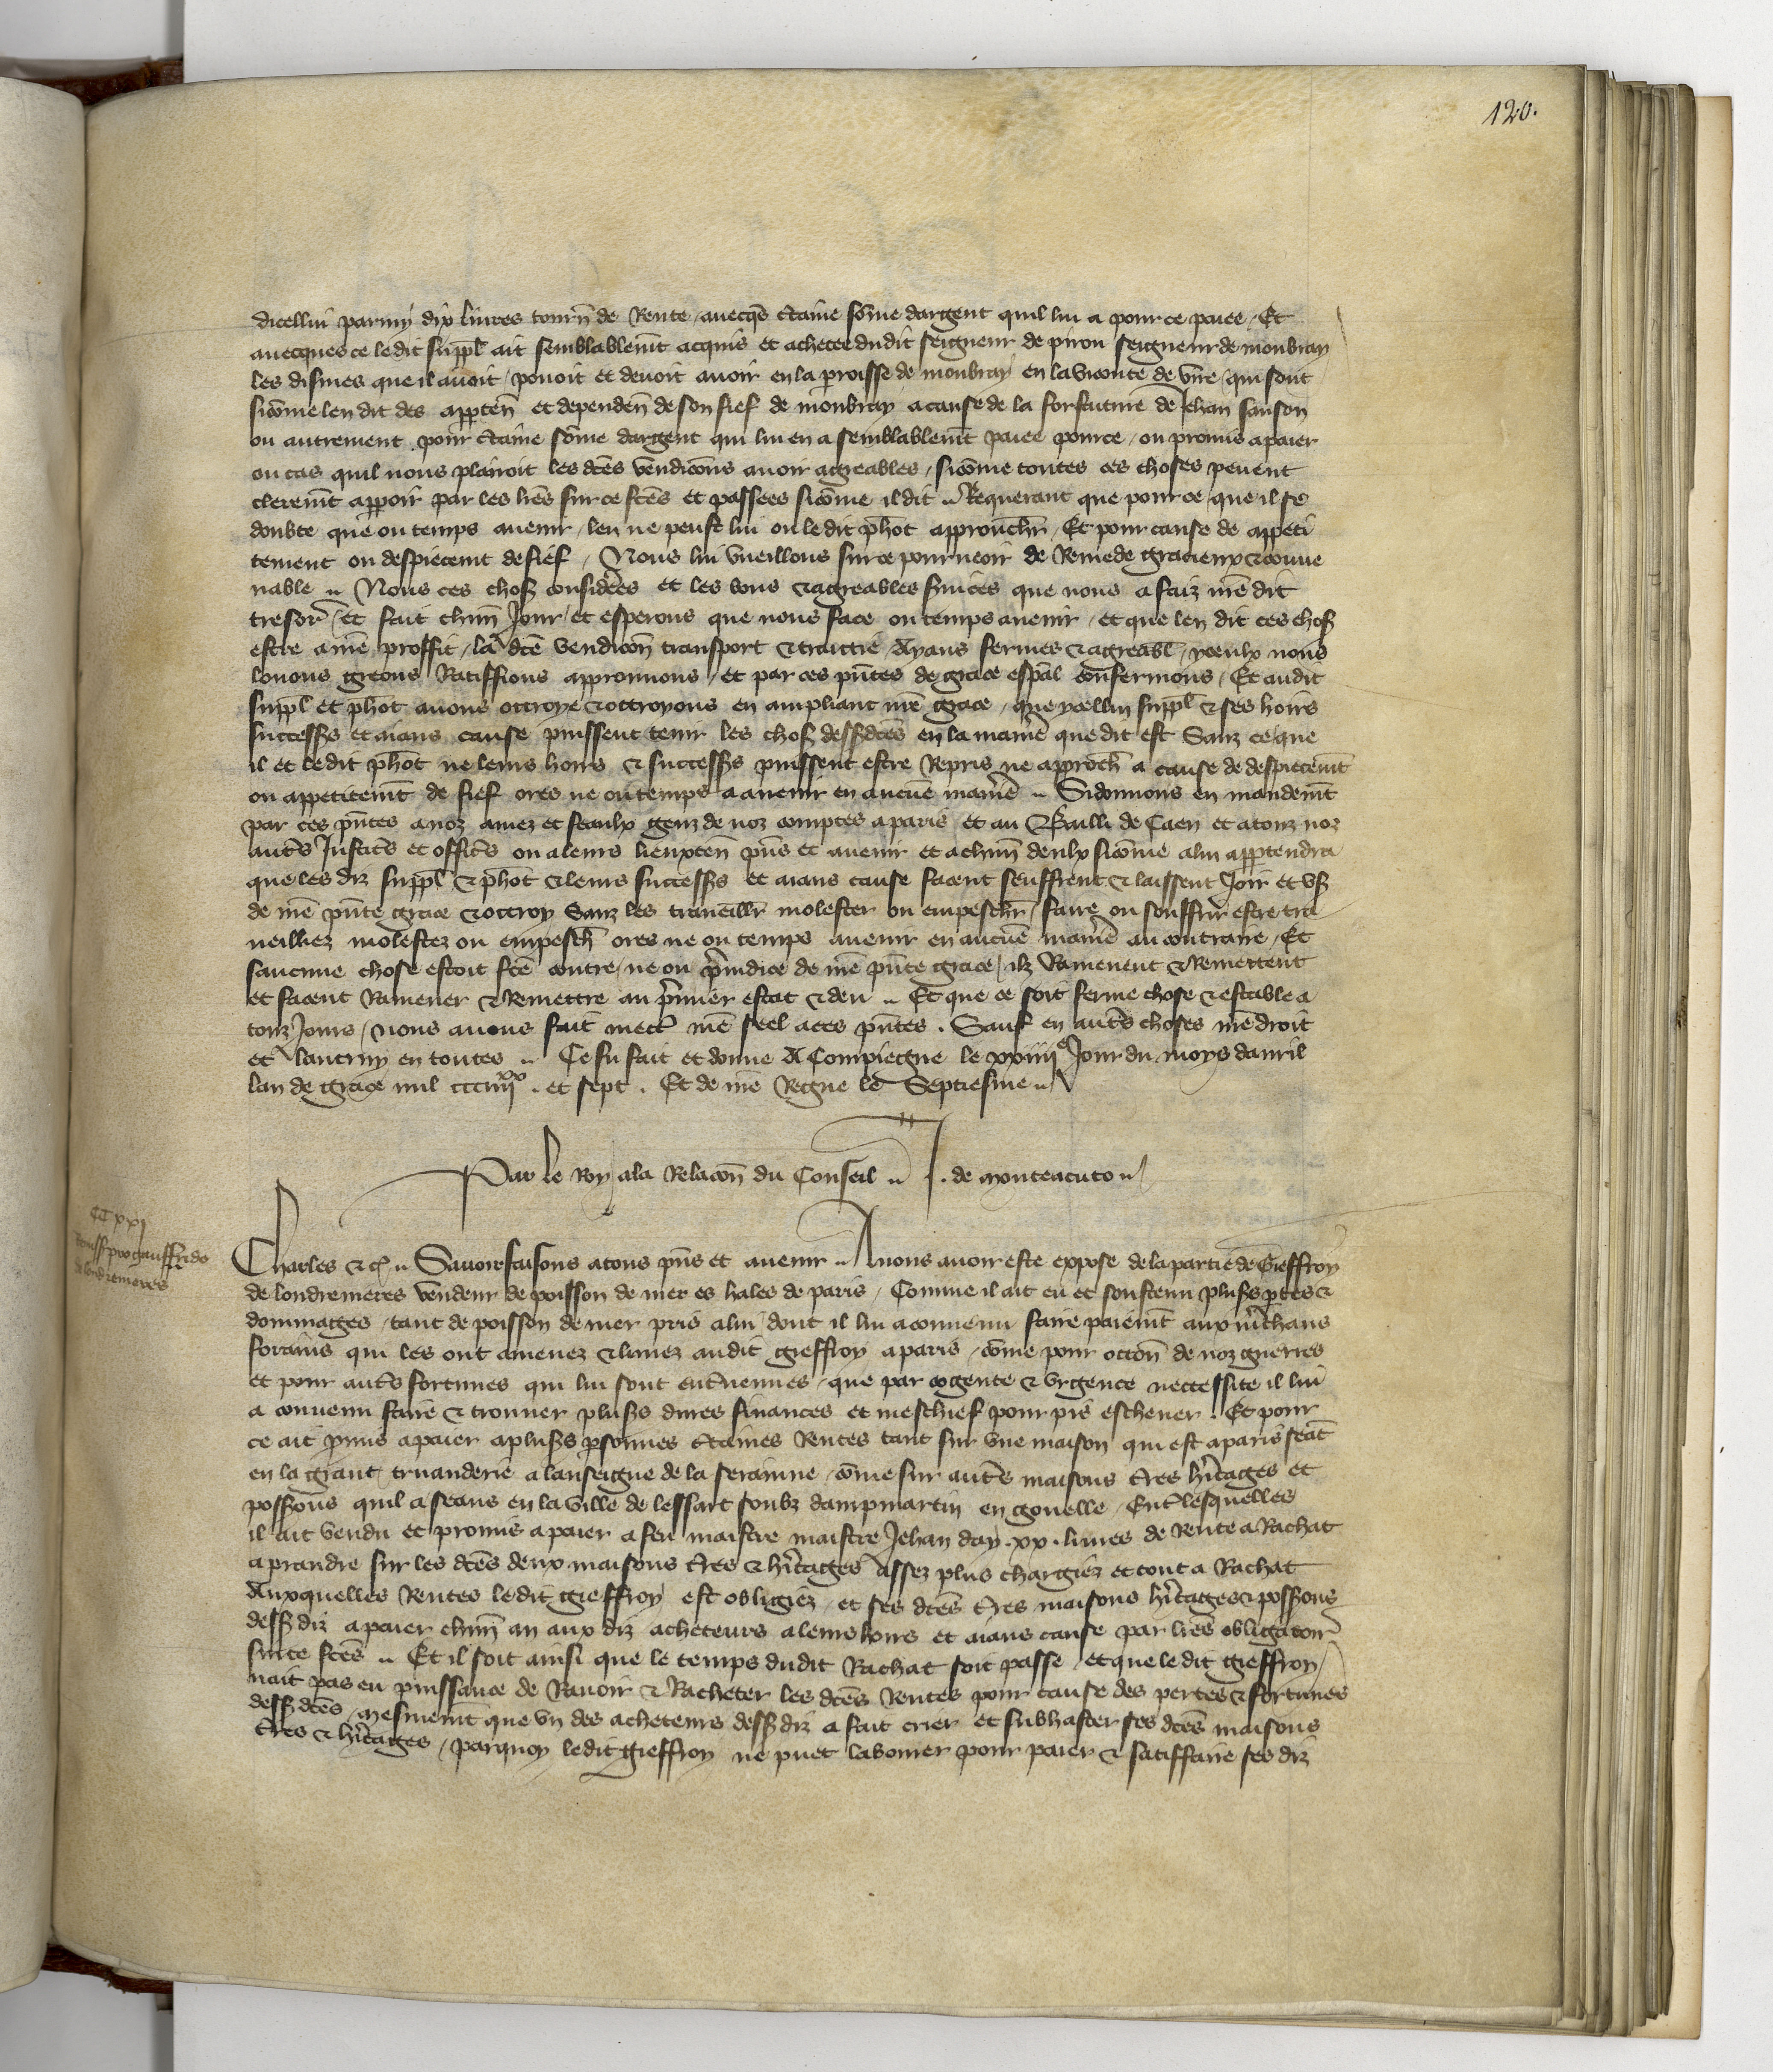 120.
dicellui parmy dix livres tourn̄ de Rente / avecq̄s c̄taine som̄e dargent quil lui a pour ce paiee / Et
avecques ce ledit suppl̄ ait semblablem̄t acquis et achetee dudit seigneur de piron seigneur de moubray
les dismes que il avoit / povoit et devoit avoir en la p̄roisse de moubray en la viconte de vire / qui sont
sicōme len dit des apparten̄ et dependen̄ de son fief de moubray a cause de la forfaiture de Jehan sanson
ou autrement pour c̄taine som̄e dargent qui lui en a semblablem̄t paiee pour ce / ou promis a paier
ou cas quil nous plairoit les dc̄es vendicōns avoir agreables / sicōme toutes ces choses pevent
clerem̄t apparoir par les lr̄es sur ce fc̄es et passees sicōme il dit .. Requerant que pour ce que il se
doubte que ou temps avenir / len ne peust lui ou ledit p̄hot approuchr̄ / Et pour cause de appeti
cement ou despiecem̄t de fief / Nous lui vueillons sur ce pourveoir de Remede gracieux & conve
nable .. Nous ces choses considerees et les bons & agreables s̄vices que nous a faiz n̄re dit
tresor̄ / et fait chūn Jour / et esperons que nous face ou temps avenir / et que len dit ces choses
estre a n̄re proffit / la dc̄e vendicōn transport & traittie Ayans fermes & agreabl̄ / yceulx nous
louons greons Ratiffions approuvons / et par ces pn̄tes de grace esp̄al confermons / Et audit
suppl̄ et p̄hot avons ottroye & ottroyons en ampliant n̄re grace / que ycellui suppl̄ & ses hoirs
successrs et aians cause puissent tenir les choses dessusdc̄es en la maniere que dit est Sanz ce que
il et ledit p̄hot ne leurs hoirs & successrs puissent estre Repris ne approch̄ a cause de despiecem̄t
ou appeticem̄t de fief ores ne ou temps a avenir en aucune maniere .. Si donnons en mandem̄t
par ces pn̄tes a noz amez et feaulx genz de noz comptes a paris et au Bailli de Caen et a touz noz
aut̄s Justic̄s et offic̄s ou a leurs lieuxten̄ pn̄s et avenir et a chūn deulx sicōme a lui appartendra
que les diz suppl̄ & p̄hot & leurs successrs et aians cause facent seuffrent & laissent Joir et user
de n̄re pn̄te grace & ottroy Sanz les traveillr̄ molester ou empeschr̄ / faire ou souffrir estre tra
veilliez molestez ou empesch̄ ores ne ou temps avenir en aucune maniere au contraire / Et
saucune chose estoit fc̄e contre / ne ou p̄iudice de n̄re pn̄te grace / ilz Ramenent & Remettent
et facent Ramener & Remettre au p̄mier estat & deu .. Et que ce soit ferme chose & estable a
touz Jours / Nous avons fait mect̄ n̄re seel a ces pn̄tes . Sauf en aut̄s choses n̄re droit
et lautruy en toutes .. Ce fu fait et donne A Compiegne le xxiiiie Jour du moys davril
lan de grace mil ccciiiixx . et sept . Et de n̄re Regne le Septiesme ..
Par le Roy a la Relacōn du Conseil .. J . de monteacuto ..
CCxxi
Remiss pro gauffrido
de londremeres
Charles &c̄ .. Savoir faisons a tous pn̄s et avenir .. A nous avoir este expose de la partie de Gieffroy
de londremeres vendeur de poisson de mer es hales de paris / Comme il ait eu et soustenu plusrs p̄tes &
dommages / tant de poisson de mer pris a lui dont il lui a convenu faire paiem̄t aux m̄chans
forains qui les ont amenez & livrez audit gieffroy a paris / cōme pour occōn de noz guerres
et pour aut̄s fortunes qui lui sont entrevenues / que par cogente & urgence neccessite il lui
a convenu faire & trouver plusrs dures finances et meschief pour pis eschever . Et pour
ce ait p̄mis a paier a plusrs p̄sonnes c̄taines Rentes tant sur une maison qui est a paris seāt
en la grant truanderie a lanseigne de la seraine / cōme sur aut̄s maisons t̄res h̄itages et
possessions quil a seans en la ville de lessart soubz dampmartin en gouelle / Ent̄ lesquelles
il ait vendu et promis a paier a feu maistre maistre Jehan day . xx . livres de Rente a Rachat
a prandre sur les dc̄es deux maisons t̄res & h̄itages Assez plus chargiez et tout a Rachat
Auxquelles Rentes ledit gieffroy est obligiez / et ses dc̄es t̄res maisons h̄itages & possessions
dessus diz a paier chūn an aux diz acheteurs a leurs hoirs et aians cause par lr̄es obligatoir̄
sur ce fc̄es .. Et il soit ainsi que le temps dudit Rachat soit passe / et que ledit gieffroy
nait pas eu puissance de Ravoir & Racheter les dc̄es Rentes pour cause des pertes & fortunes
dessusdc̄es / mesmem̄t que un des acheteurs dessus diz a fait crier et subhaster ses dc̄es maisons
t̄res & h̄itages / parquoy ledit gieffroy ne puet labourer pour paier & satiffaire ses diz